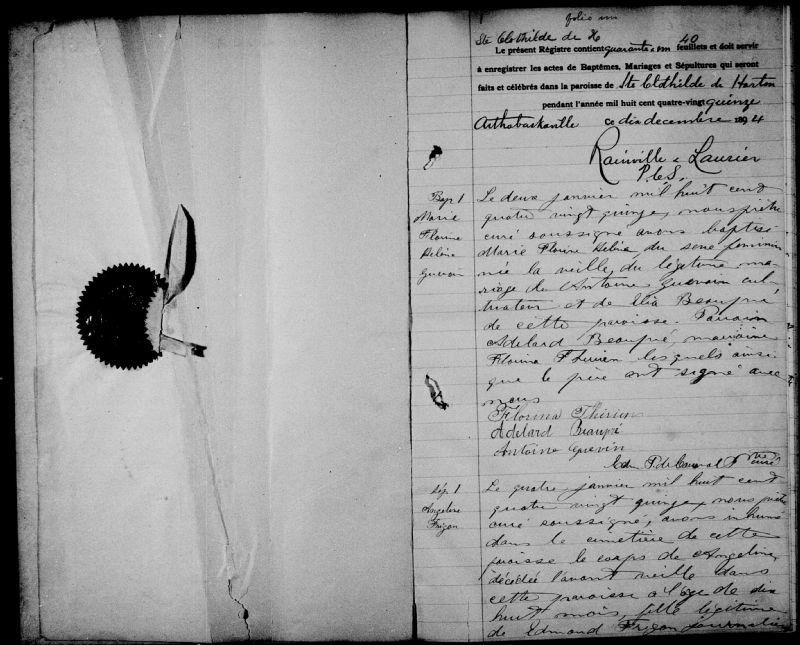 folio un
Ste Clothilde de H
Le présent Régistre contient quarante-un 40 feuillets et doit servir
à enregistrer les actes de Baptêmes, Mariages et Sépultures qui seront
faits et célébrés dans la paroisse de Ste Clothilde de Horton
pendant l'année mil huit cent quatre-vingt quinze
Arthabaskaville Ce dix decembre 1894
Rainville & Laurier
P.C.S.
Bap. 1
Marie
Florine
Délia
Guévin
Le deux janvier mil huit cent
quatre vingt quinze, nous prêtre
curé soussigné avons baptisé
Marie Florine Délia, du sexe féminin
née la veille, du légitime ma-
riage de Antoine Guevin cul-
tivateur et de Elia Beaupré
de cette paroisse. Parrain
Adelard Beaupré, marraine
Florina Therien lesquels ainsi
que le père ont signé avec
nous
Florina Thérien
Adelard Beaupré
Antoine Guevin
Ptre curé
Sép. 1
Angeline
Frigon
Le quatre janvier mil huit cent
quatre vingt quinze, nous prêtre
curé soussigné, avons inhumé
dans le cimetière de cette
paroisse le corps de Angeline,
décédée l'avant veille dans
cette paroisse à l'âge de dix
huit mois, fille légitime
de Edmond Frigon journalier